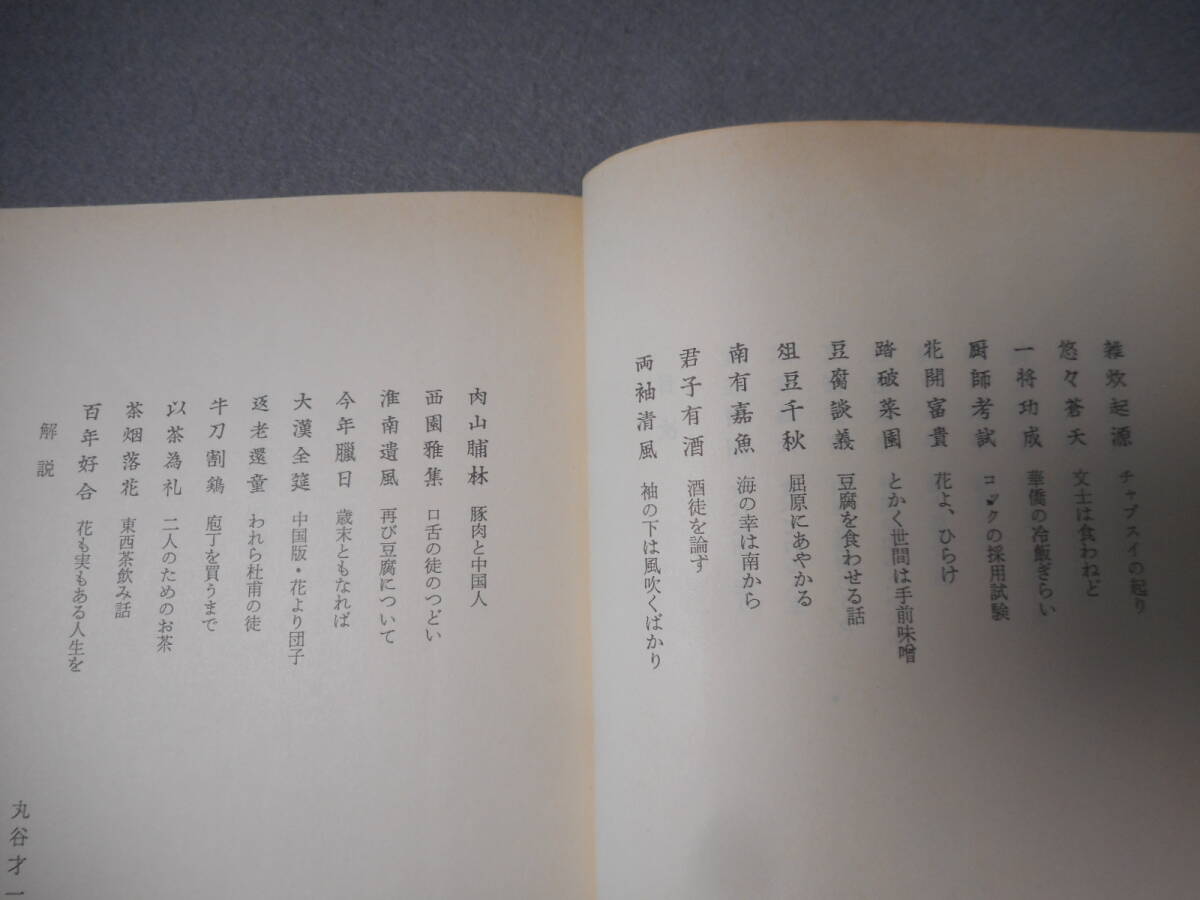 雑炊起源 チャプスイの起り
悠々蒼天 文士は食わねど
一将功成 華僑の冷飯ぎらい
厨師考試 コックの採用試験
花開富貴 花よ、ひらけ
踏破菜園 とかく世間は手前味噌
豆腐談義 豆腐を食わせる話
俎豆千秋 屈原にあやかる
南有嘉魚 海の幸は南から
君子有酒 酒徒を論ず
両袖清風 袖の下は風吹くばかり
肉山脯林 豚肉と中国人
西園雅集 口舌の徒のつどい
淮南遺風 再び豆腐について
今年臘日 歳末ともなれば
大漢全筵 中国版・花より団子
返老還童 われら杜甫の徒
牛刀割鶏 庖丁を買うまで
以茶為礼 二人のためのお茶
茶烟落花 東西茶飲み話
百年好合 花も実もある人生を
解説
丸谷才一